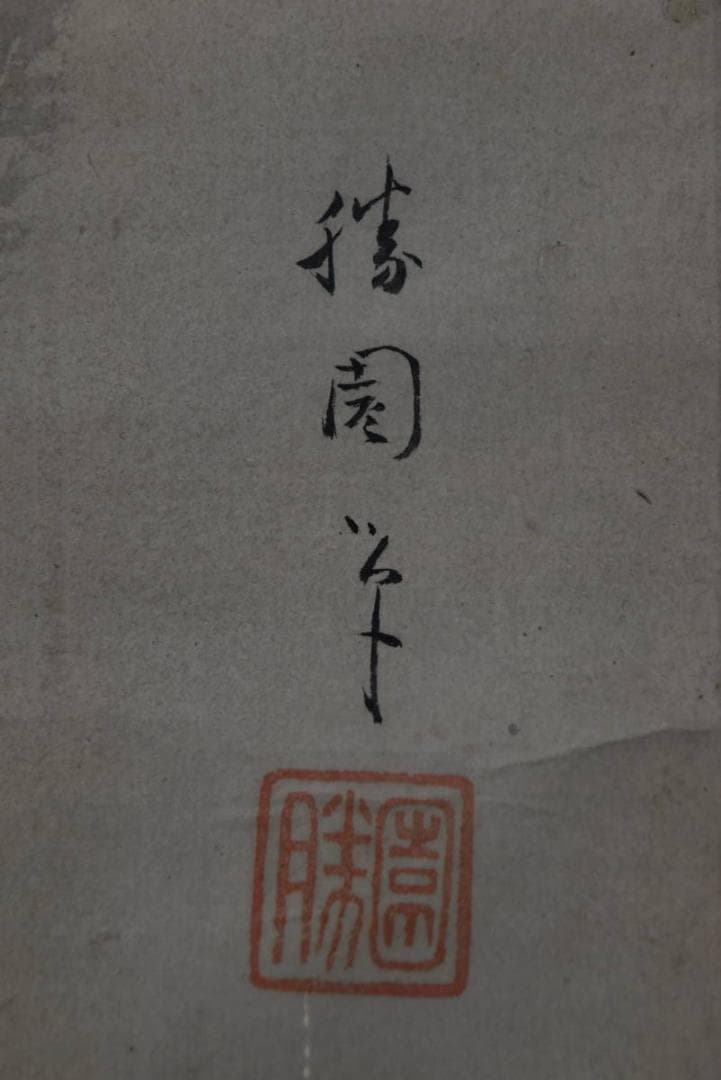 勝園筆
勝園